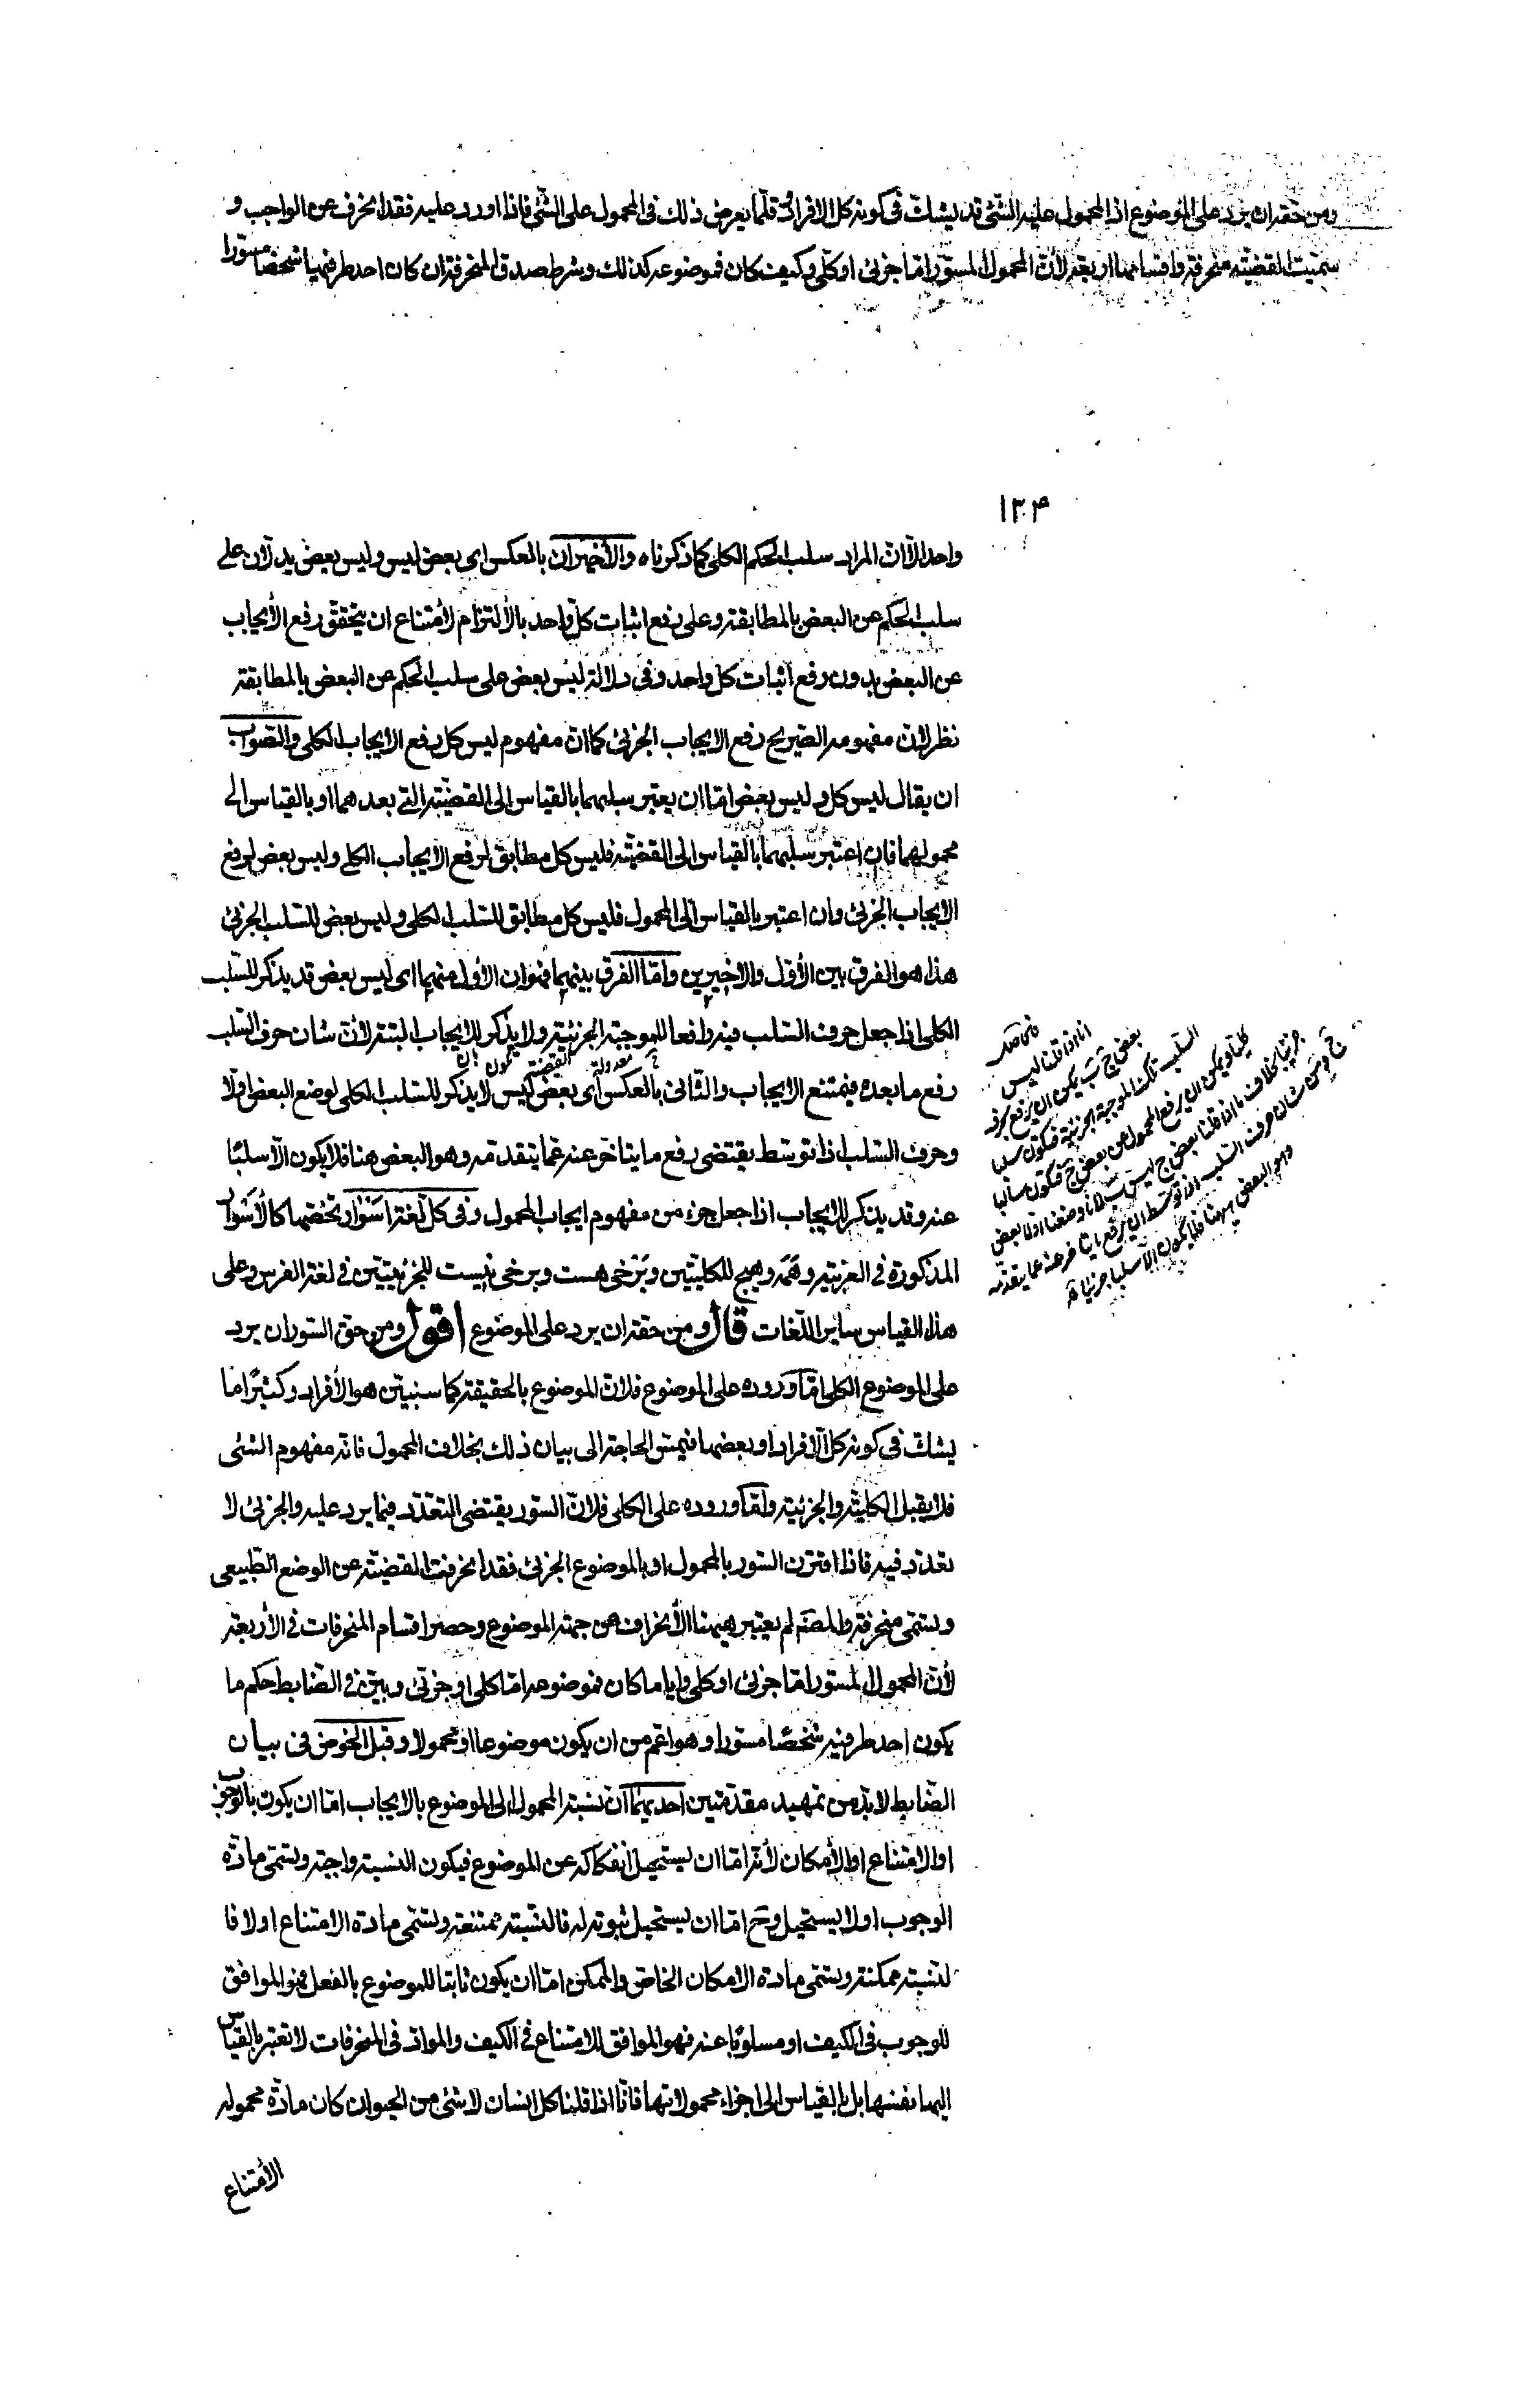 ومن حقه ان يرد على الموضوع اذ المحمول عليه الشئ قد يشك في كونه كل الافراد قلما يعرض ذلك في المحمول على الشئ فاذا اورد عليه فقد انحرف عن الواجب و
سميت القضية منحرفة واقسامها اربعة لأن المحمول المسور اما جزئى او كلى وكيف كان فموضوعه كذلك وشرط صدق المنحرفة ان كان احد طرفيها شخصا مسورا
١٢۴
واحد الا ان المراد سلب الحكم الكلى كما ذكرناه والأخيران بالعكس اى بعض ليس وليس بعض يدلان على
سلب الحكم عن البعض بالمطابقة وعلى رفع اثبات كل واحد بالألتزام لأمتناع ان يتحقق رفع الأيجاب
عن البعض بدون رفع اثبات كل واحد وفى دلالة ليس بعض على سلب الحكم عن البعض بالمطابقة
نظر لان مفهومه الصريح رفع الايجاب الجزئى كما ان مفهوم ليس كل رفع الايجاب الكلى والصواب
ان يقال ليس كل وليس بعض اما ان يعتبر سلبهما بالقياس الى القضية التى بعدهما او بالقياس الى
محموليهما فان اعتبر سلبهما بالقياس الى القضية فليس كل مطابق لرفع الأيجاب الكلى وليس بعض لرفع
الايجاب الجزئى وان اعتبر بالقياس الى المحمول فليس كل مطابق للسلب الكلى وليس بعض للسلب الجزئى
هذا هو الفرق بين الأول والاخيرين واما الفرق بينهما فهو ان الأول منهما اى ليس بعض قد يذكر للسلب
الكلى اذا جعل حرف السلب فيه رافعا للموجبة الجزئية ولا يذكر للايجاب البتة لأن شان حرف السلب
رفع ما بعده فيمتنع الايجاب والثانى بالعكس اى بعض ليس لا يذكر للسلب الكلى لوضع البعض اولا
وحرف السلب اذا توسط يقتضى رفع ما يتاخر عنه عما يتقدمه وهو البعض هنا فلا يكون الا سلبًا
عنه وقد يذكر للايجاب اذا جعل جزء من مفهوم ايجاب المحمول وفى كل لغة اسوار تخصها كالأسوار
المذكورة فى العربية وهمه وهيچ للكليتين وبرخى هست وبرخى نيست للجزئيتين فى لغة الفرس وعلى
هذا القياس ساير اللغات قال ومن حقه ان يرد على الموضوع اقول ومن حق السور ان يرد
على الموضوع الكلى اما وروده على الموضوع فلان الموضوع بالحقيقة كما سنبين هو الأفراد وكثيرًا ما
يشك فى كونه كل الافراد او بعضها فيمس الحاجة الى بيان ذلك بخلاف المحمول فانه مفهوم الشئى
فلا يقبل الكلية والجزئية واما وروده على الكلى فلان السور يقتضى التعدد فيما يرد عليه والجزئى لا
تعدد فيه فاذا اقترن السور بالمحمول او بالموضوع الجزئى فقد انحرفت القضية عن الوضع الطبيعى
وتسمى منحرفة والمصنف لم يعتبر ههنا الأنحراف عن جهة الموضوع وحصر اقسام المنحرفات فى الأربعة
لأن المحمول المسور اما جزئى او كلى وايا ما كان فموضوعه اما كلى او جزئى وبين فى الضابط حكم ما
يكون احد طرفيه شخصًا مسورا وهو اعم من ان يكون موضوعا او محمولا وقبل الخوض فى بيان
الضابط لا بد من تمهيد مقدمتين احديهما ان نسبة المحمول الى الموضوع بالايجاب اما ان يكون بالوجوب
او الامتناع او الأمكان لأنه اما ان يستحيل انفكاكه عن الموضوع فيكون النسبة واجبة وتسمى مادة
الوجوب او لا يستحيل وح اما ان يستحيل ثبوته له فالنسبة ممتنعة وتسمى مادة الامتناع او لا فا
لنسبة ممكنة وتسمى مادة الامكان الخاص والممكن اما ان يكون ثابتا للموضوع بالفعل فهو الموافق
للوجوب فى الكيف او مسلوبًا عنه فهو الموافق للامتناع فى الكيف والمواد فى المنحرفات لا تعتبر بالقياس
اليها نفسها بل بالقياس الى اجزاء محمولاتها فانا اذا قلنا كل انسان لا شئ من الحيوان كان مادة محموله
الأمتناع
انا اذا قلنا ليس
بعض ج ب يمكن ان يرفع بحرف
السلب تلك الموجبة الجزئية فيكون سلبا
كليا ويمكن ان يرفع المحمول عن بعض ج فيكون سالبا
جزئيا بخلاف ما اذا قلنا بعض ج ليس ب لانا وضعنا اولا بعض
ج ومن شان حرف السلب اذا توسط ان يرفع ما يتاخر عنه عما يتقدمه
وهو البعض ههنا فلا يكون الا سلبا جزئيا